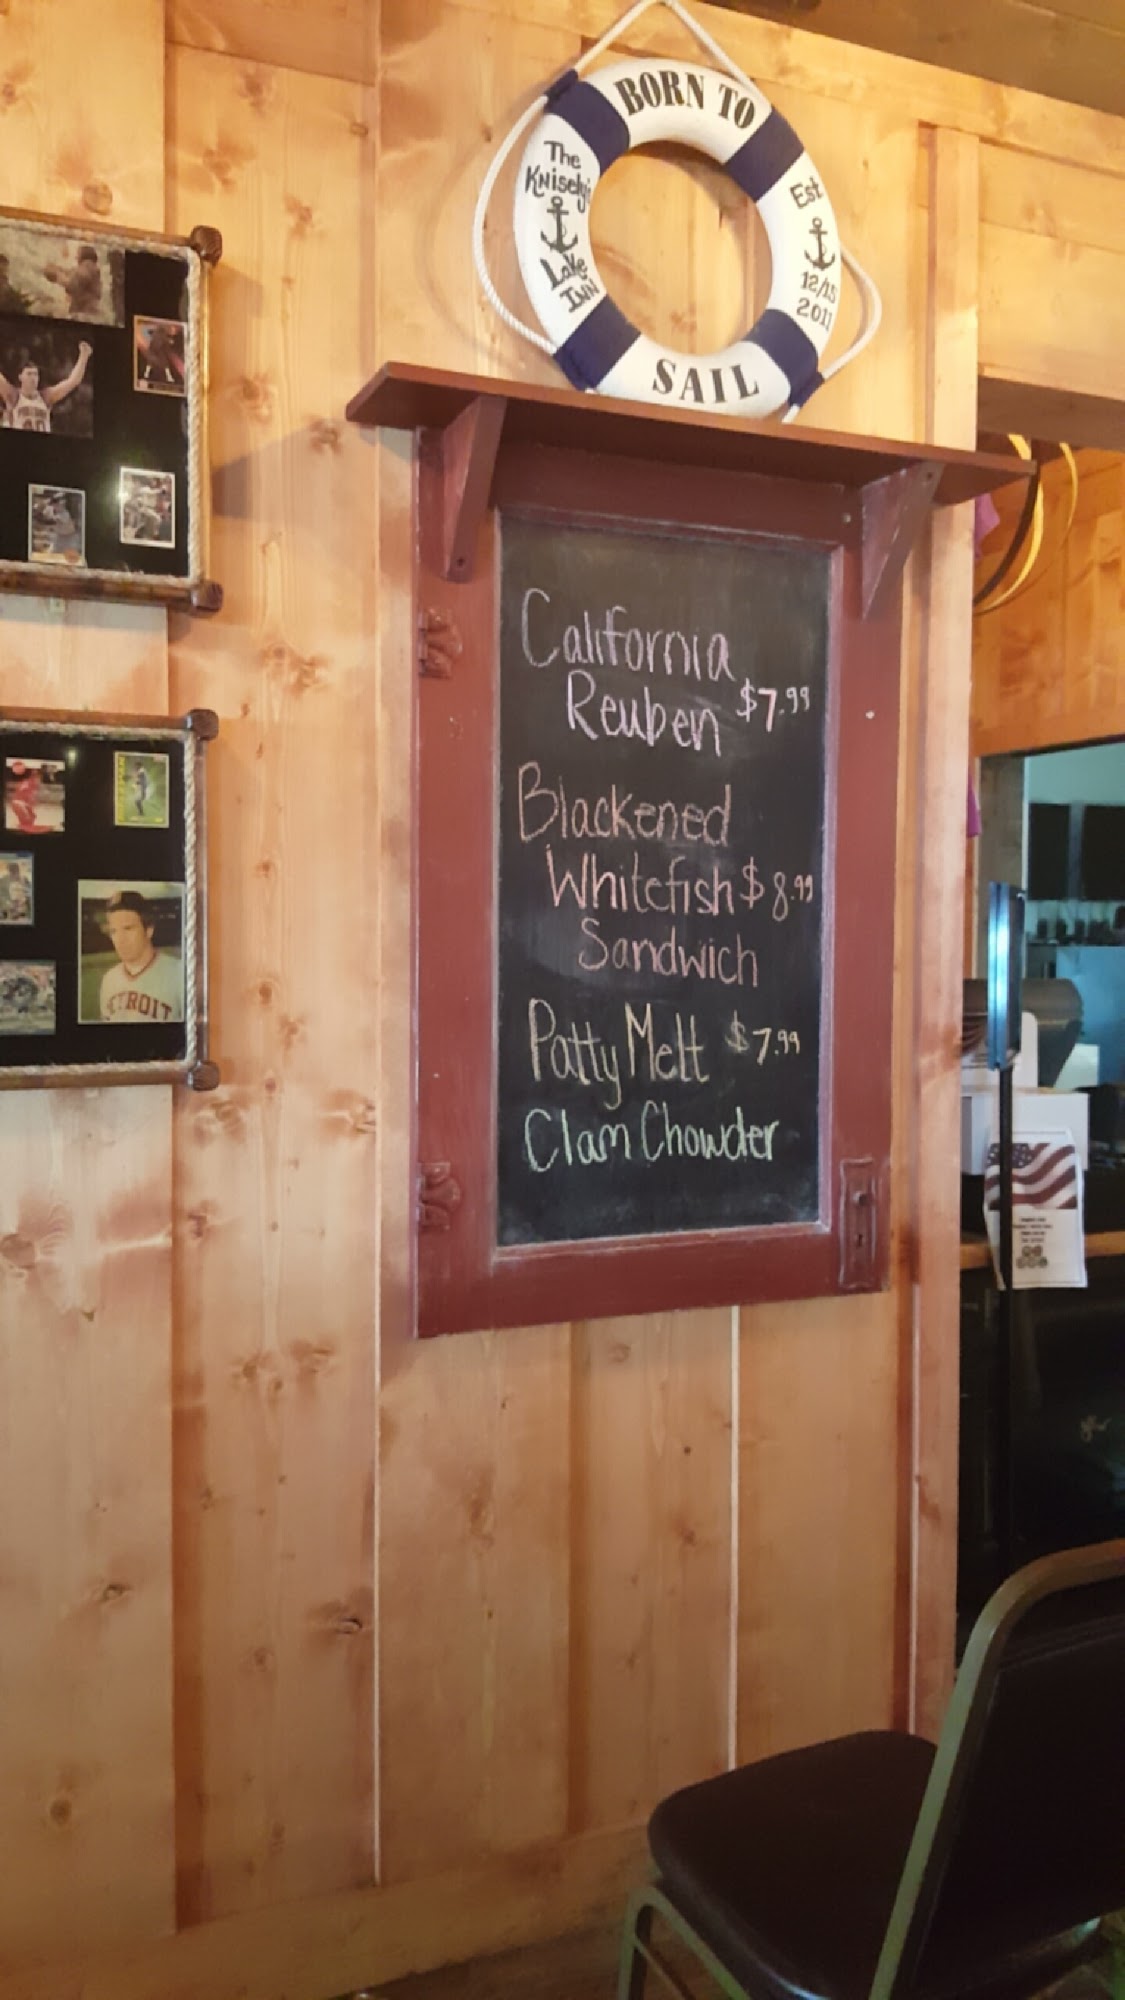 BORN TO
The
Knisely's
Lake
INN
Est
12/15
2011
SAIL
California
Reuben $7.99
Blackened
Whitefish $8.99
Sandwich
Patty Melt $7.99
Clam Chowder
DETROIT